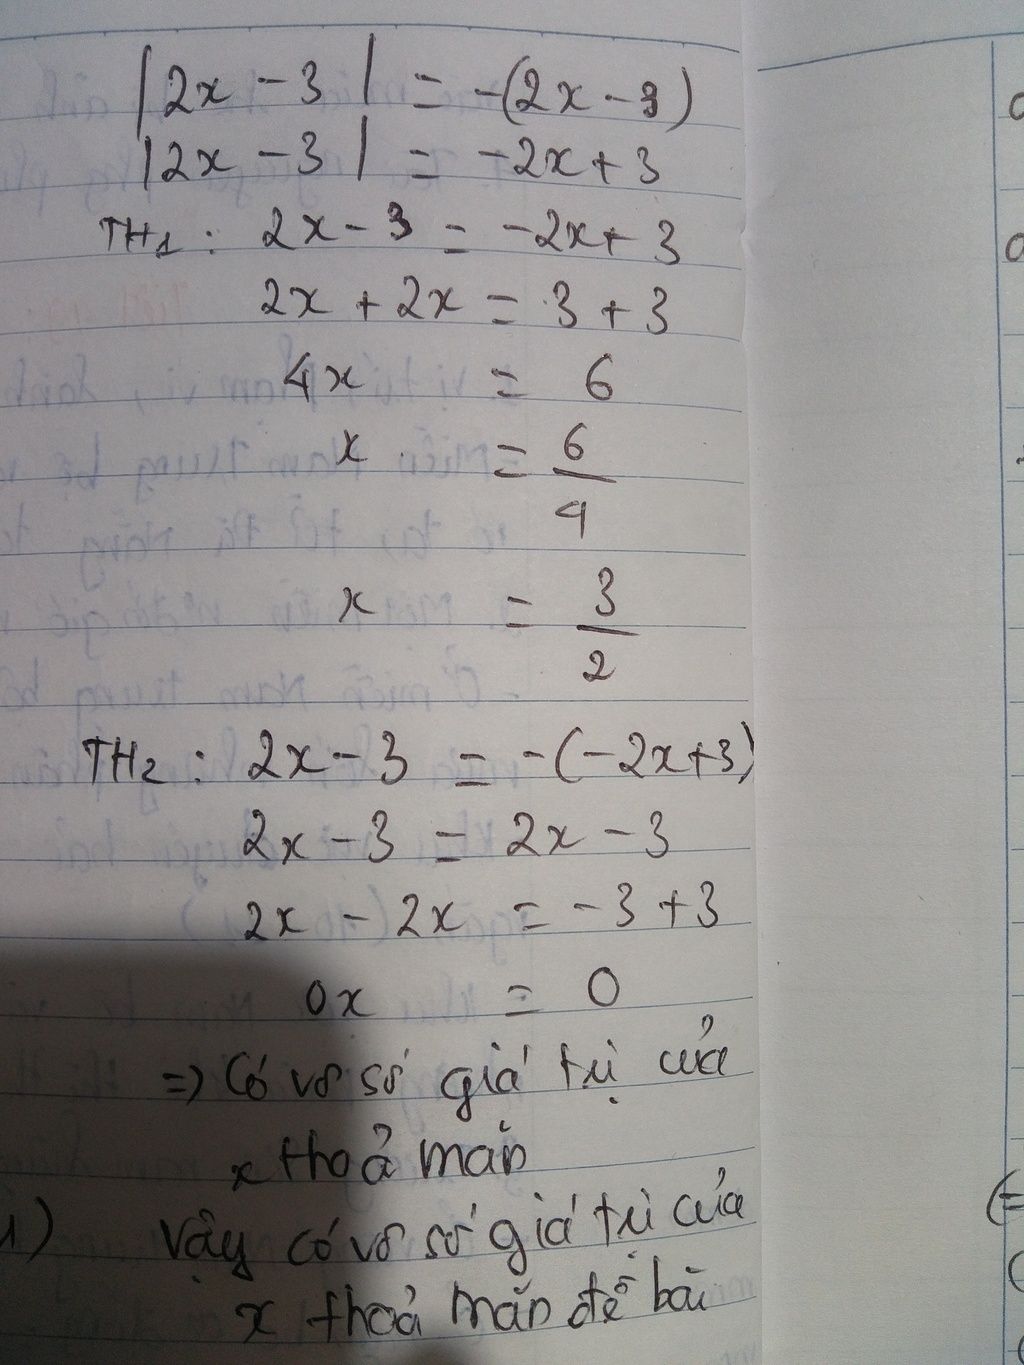 |2x - 3| = -(2x - 3)
|2x - 3| = -2x + 3
TH1: 2x - 3 = -2x + 3
2x + 2x = 3 + 3
4x = 6
x = 6/4
x = 3/2
TH2: 2x - 3 = -(-2x+3)
2x - 3 = 2x - 3
2x - 2x = -3 + 3
0x = 0
=) Có vô số giá trị của
x thoả mãn
Vậy có vô số giá trị của
x thoả mãn đề bài